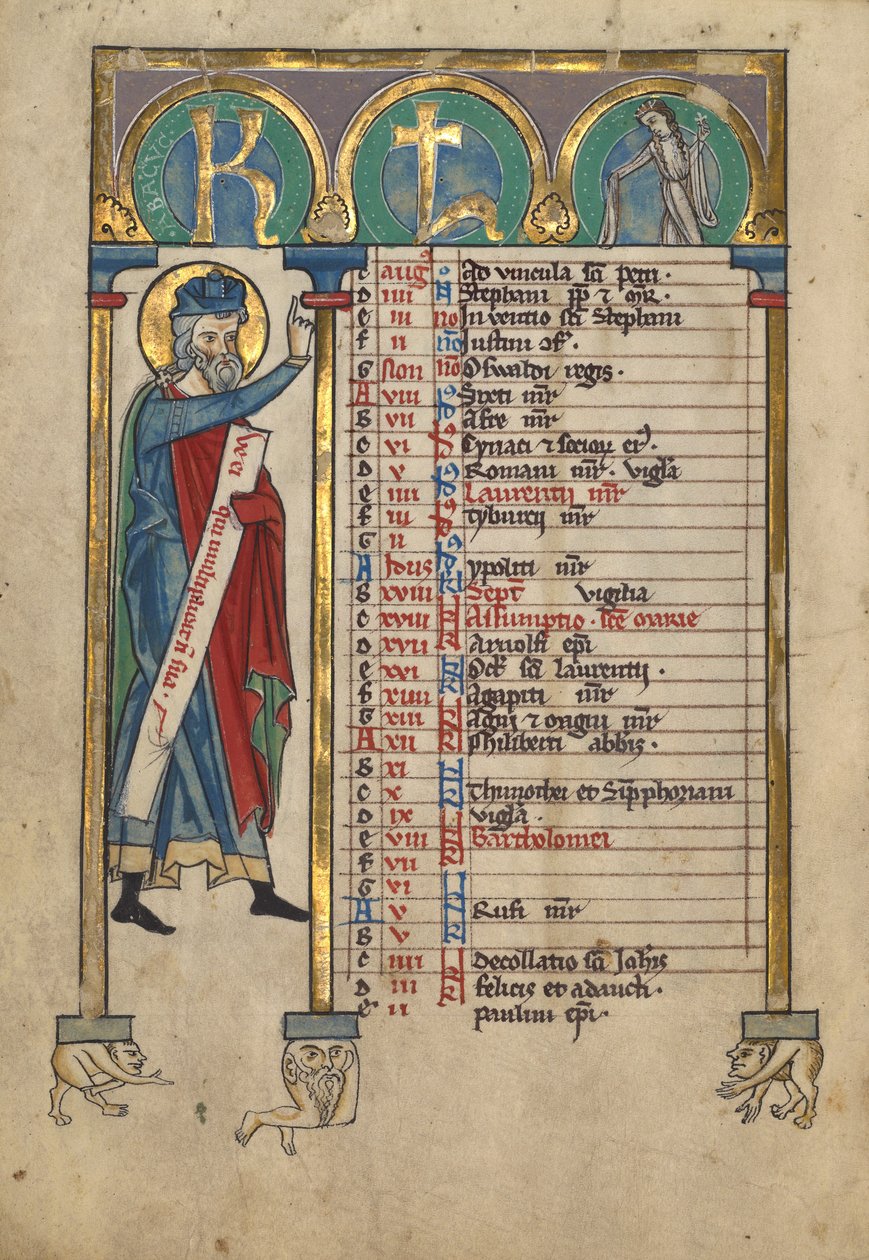 ABACVC
K L
c aug⁹ · Ad vincula sci petri ·
D iiii N Stephani pp & mr ·
e iii no Inventio sci Stephani
f ii no Justini 9f ·
G Non no Oswaldi regis ·
A viii Sixti mr
B vii Afre mr
c vi Cyriaci & socior er ·
D v Romani mr · vigla
e iiii Laurentii mr
f iii Tyburcij mr
G ii
A Idus ypoliti mr
B xviiii Sept vigilia
c xviii Assumptio · sce Marie
D xvii Arnolfi epi
e xvi Oct sci Laurentij ·
f xiiii Agapiti mr
G xiii Agni & mr
A xii Philiberti abbis ·
B xi
c x Thimothei et Simphoriani
D ix vigla ·
e viii Bartholomei
f vii
G vi
A v Rufi mr
B v
c iiii Decollatio sci Johis
D iii felicis et adaucti ·
e ii paulini epi ·
qui multiplicat n sua ·